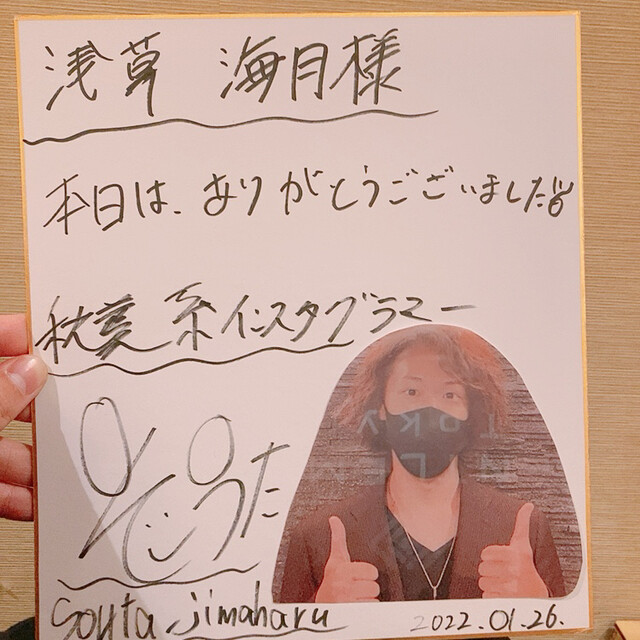 浅草 海月様
本日は、ありがとうございました
系インスタグラマー
そうた
Souta jimaharu
2022.01.26.